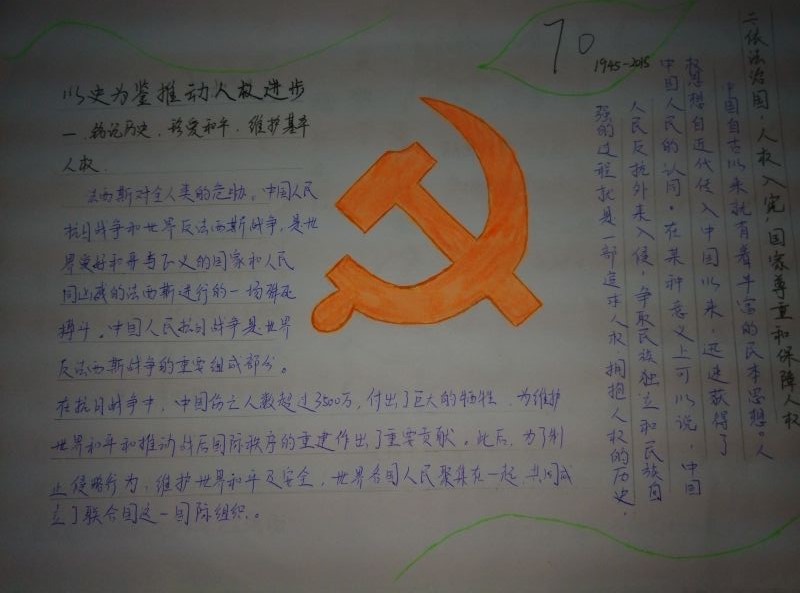 以史为鉴推动人权进步
一.铭记历史、珍爱和平、维护基本
人权.
法西斯对全人类的危胁。中国人民
抗日战争和世界反法西斯战争，是世
界爱好和平与正义的国家和人民
同凶残的法西斯进行的一场殊死
搏斗。中国人民抗日战争是世界
反法西斯战争的重要组成部分。
在抗日战争中，中国伤亡人数超过3500万，付出了巨大的牺牲，为维护
世界和平和推动战后国际秩序的重建作出了重要贡献。此后，为了制
止侵略行为，维护世界和平及安全，世界各国人民聚集在一起，共同成
立了联合国这一国际组织。
70
1945-2015
二.依法治国，人权入宪，国家尊重和保障人权
中国自古以来就有着丰富的民本思想。人
权思想自近代传入中国以来，迅速获得了
中国人民的认同。在某种意义上可以说，中国
人民反抗外来入侵，争取民族独立和民族自
强的过程就是一部追求人权，拥抱人权的历史.